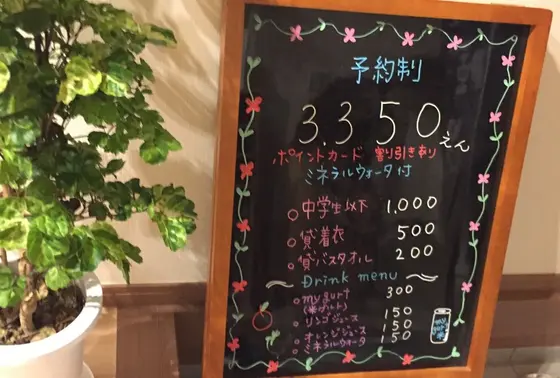 予約制
3.350えん
ポイントカード 割り引きあり
ミネラルウォータ付
○中学生以下 1,000
○貸着衣 500
○貸バスタオル 200
Drink menu
○mygurt 300
(米グルト)
○リンゴジュース 150
○オレンジジュース 150
○ミネラルウォータ 150